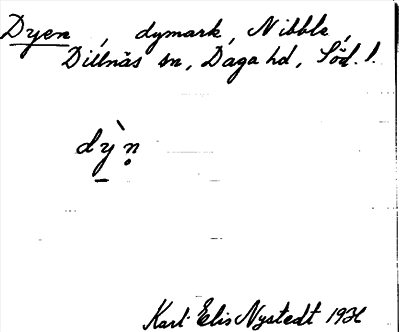 Dyen, dymark, Nibble,
Dillnäs sn, Daga hd, Söd. l.
dỳ̠ṇ
Karl-Elis Nystedt 1936